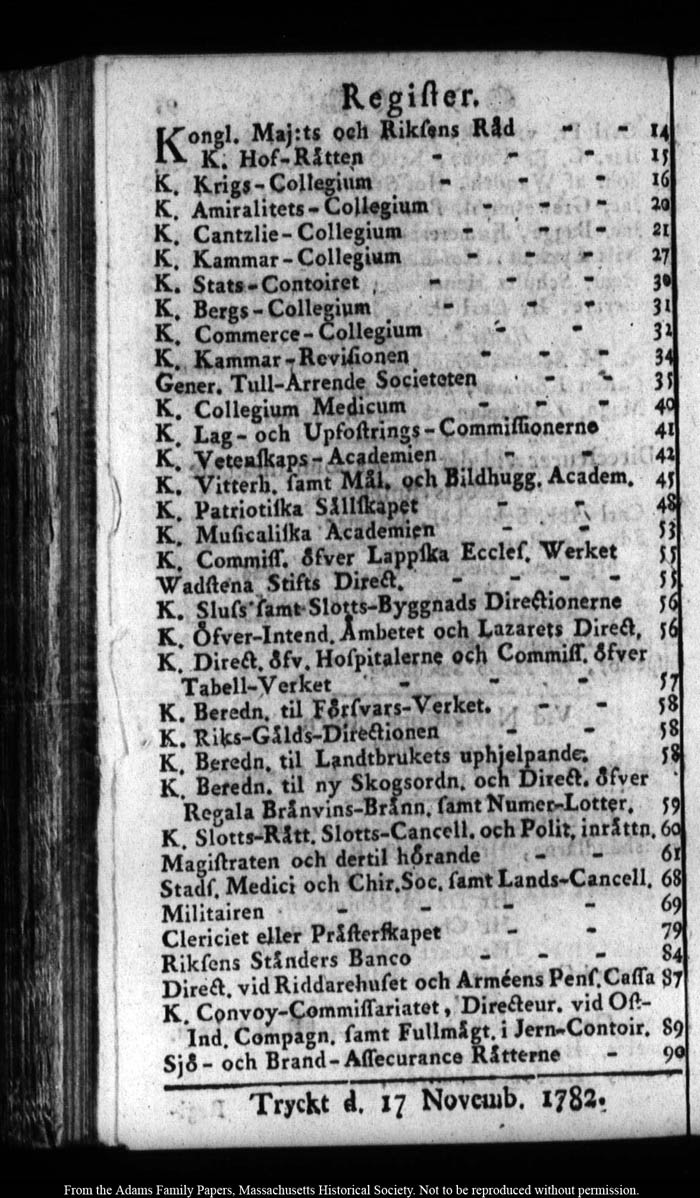 Regiſter.
Kongl. Maj:ts och Rikſens Råd - - 14
K. Hof-Råtten - - - 15
K. Krigs-Collegium - - - 16
K. Amiralitets-Collegium - - - 20
K. Cantzlie-Collegium - - - 21
K. Kammar-Collegium - - - 27
K. Stats-Contoiret - - - 30
K. Bergs-Collegium - - - 31
K. Commerce-Collegium - - 32
K. Kammar-Reviſionen - - - 34
Gener. Tull-Arrende Societeten - - 35
K. Collegium Medicum - - - 40
K. Lag- och Upfoſtrings-Commiſſionerne 41
K. Vetenſkaps-Academien - - 42
K. Vitterh. ſamt Mål. och Bildhugg. Academ. 45
K. Patriotiſka Sållſkapet - - 48
K. Muſicaliſka Academien - - 53
K. Commiſſ. ôfver Lappſka Eccleſ. Werket 55
Wadſtena Stifts Direct. - - - - 55
K. Sluſs ſamt Slotts-Byggnads Directionerne 56
K. Ôfver-Intend. Åmbetet och Lazarets Direct. 56
K. Direct. ôfv. Hoſpitalerne och Commiſſ. ôfver
Tabell-Verket - - - 57
K. Beredn. til Fôrſvars-Verket. - - 58
K. Riks-Gålds-Directionen - - 58
K. Beredn. til Landtbrukets uphjelpande. 58
K. Beredn. til ny Skogsordn. och Direct. ôfver
Regala Brånvins-Brånn. ſamt Numer-Lotter. 59
K. Slotts-Rått. Slotts-Cancell. och Polit. inråttn. 60
Magiſtraten och dertil hôrande - - 61
Stadſ. Medici och Chir. Soc. ſamt Lands-Cancell. 68
Militairen - - - - 69
Clericiet eller Pråſterſkapet - - 79
Rikſens Stånders Banco - - - 84
Direct. vid Riddarehuſet och Arméens Penſ. Caſſa 87
K. Convoy-Commiſſariatet, Directeur. vid Oſt-
Ind. Compagn. ſamt Fullmågt. i Jern-Contoir. 89
Sjô- och Brand-Aſſecurance Råtterne - 90
Tryckt d. 17 Novemb. 1782.
From the Adams Family Papers, Massachusetts Historical Society. Not to be reproduced without permission.